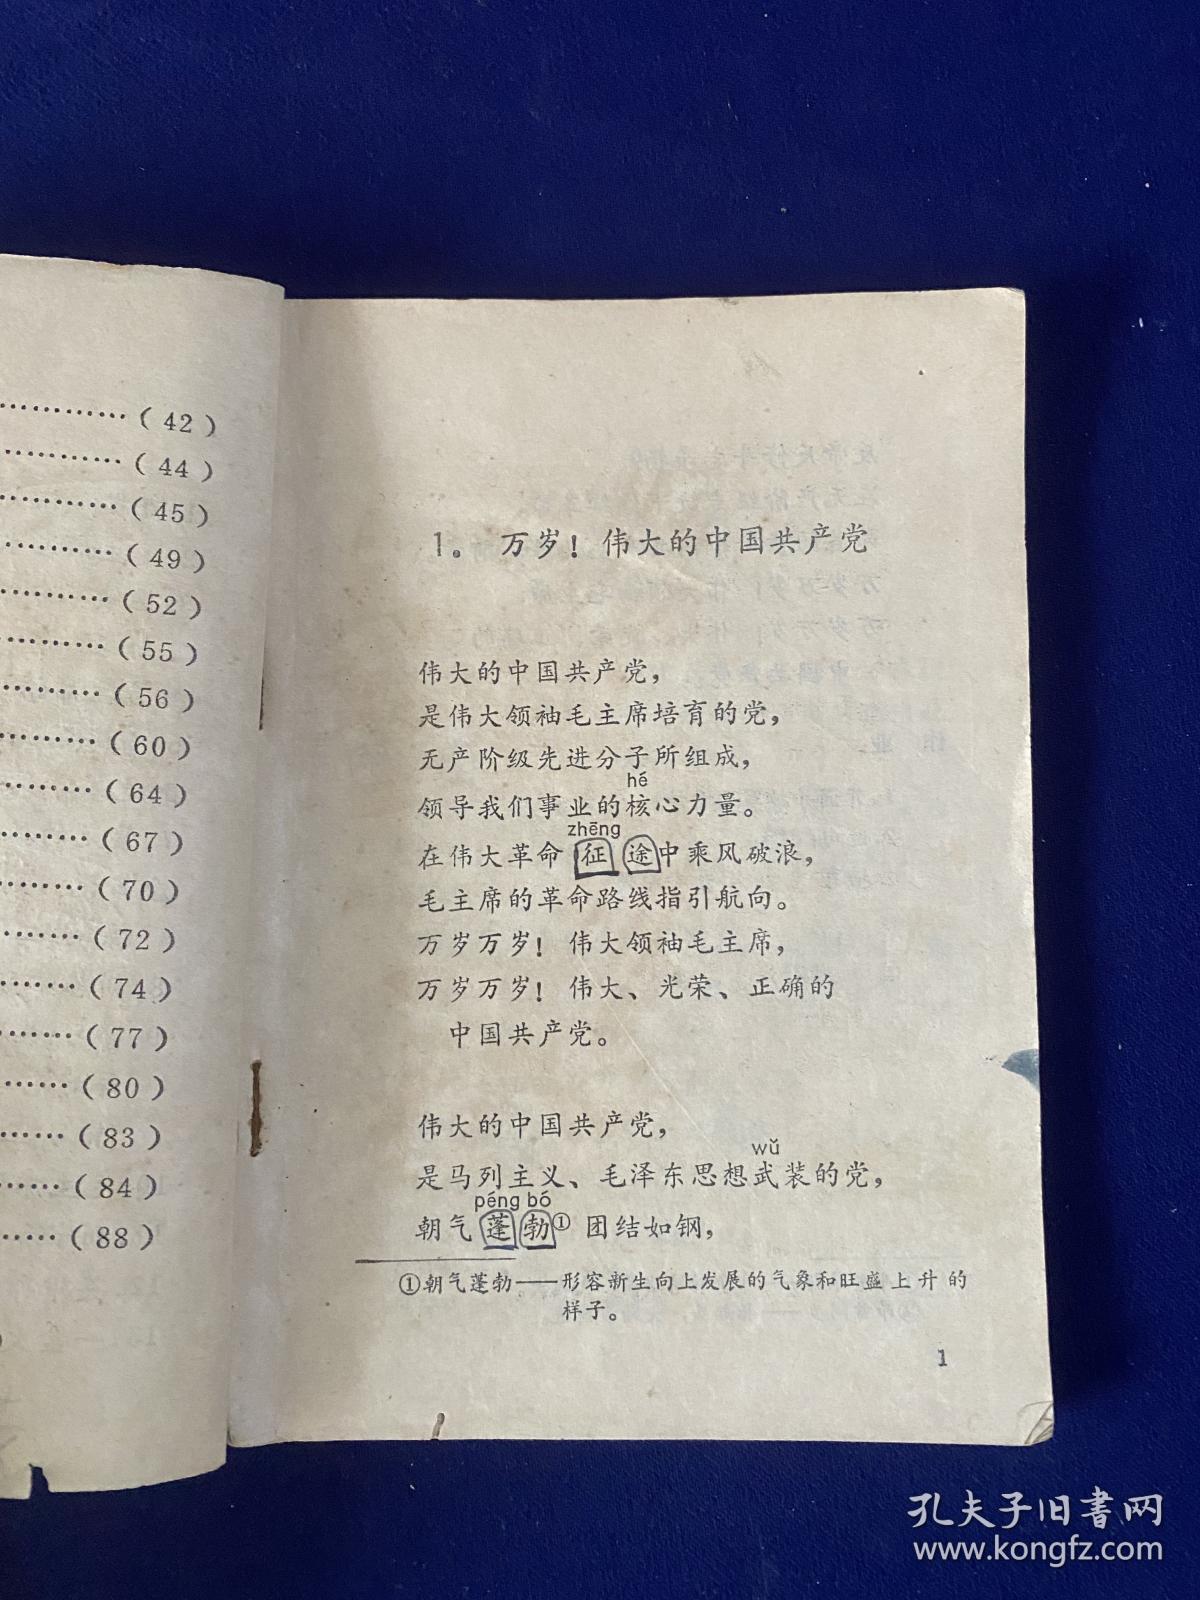 …………(42)
…………(44)
…………(45)
…………(49)
…………(52)
…………(55)
…………(56)
…………(60)
…………(64)
…………(67)
…………(70)
…………(72)
…………(74)
…………(77)
…………(80)
…………(83)
…………(84)
…………(88)
1。 万岁！伟大的中国共产党
伟大的中国共产党，
是伟大领袖毛主席培育的党，
无产阶级先进分子所组成，
hé
领导我们事业的核心力量。
zhēng
在伟大革命征途中乘风破浪，
毛主席的革命路线指引航向。
万岁万岁！伟大领袖毛主席，
万岁万岁！伟大、光荣、正确的
中国共产党。
伟大的中国共产党，
wǔ
是马列主义、毛泽东思想武装的党，
péng bó
朝气蓬勃① 团结如钢，
①朝气蓬勃——形容新生向上发展的气象和旺盛上升的
样子。
1
孔夫子旧书网
www.kongfz.com